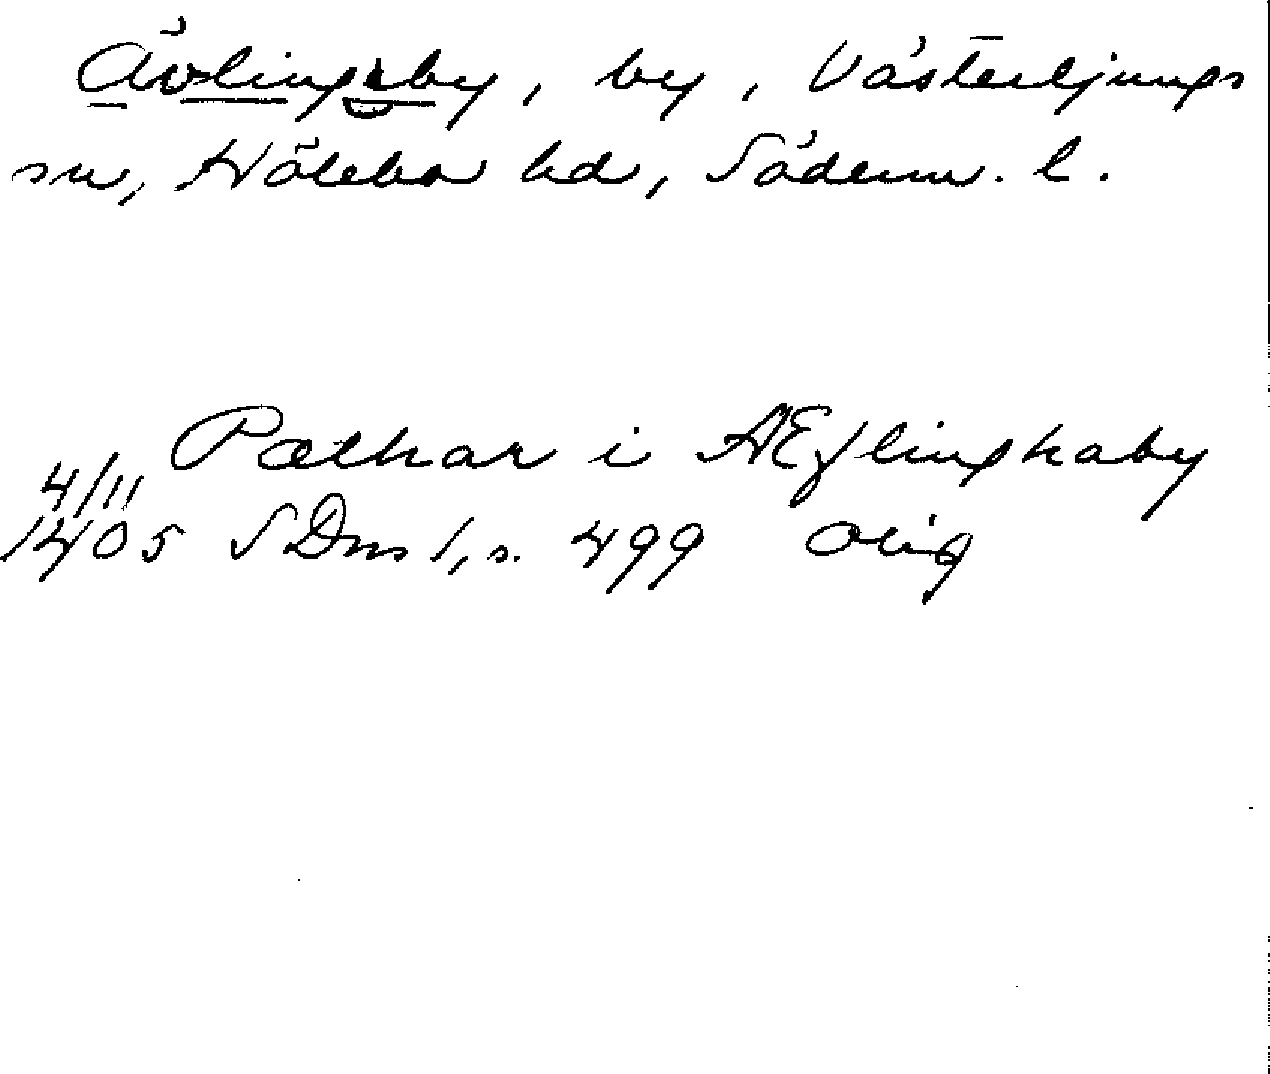 Ävlingeby, by, Västerljungs
sn, Hölebo hd, Söderm. l.
Pæthar i Æflinghaby
4/11
1405 SDns 1, s. 499 Orig